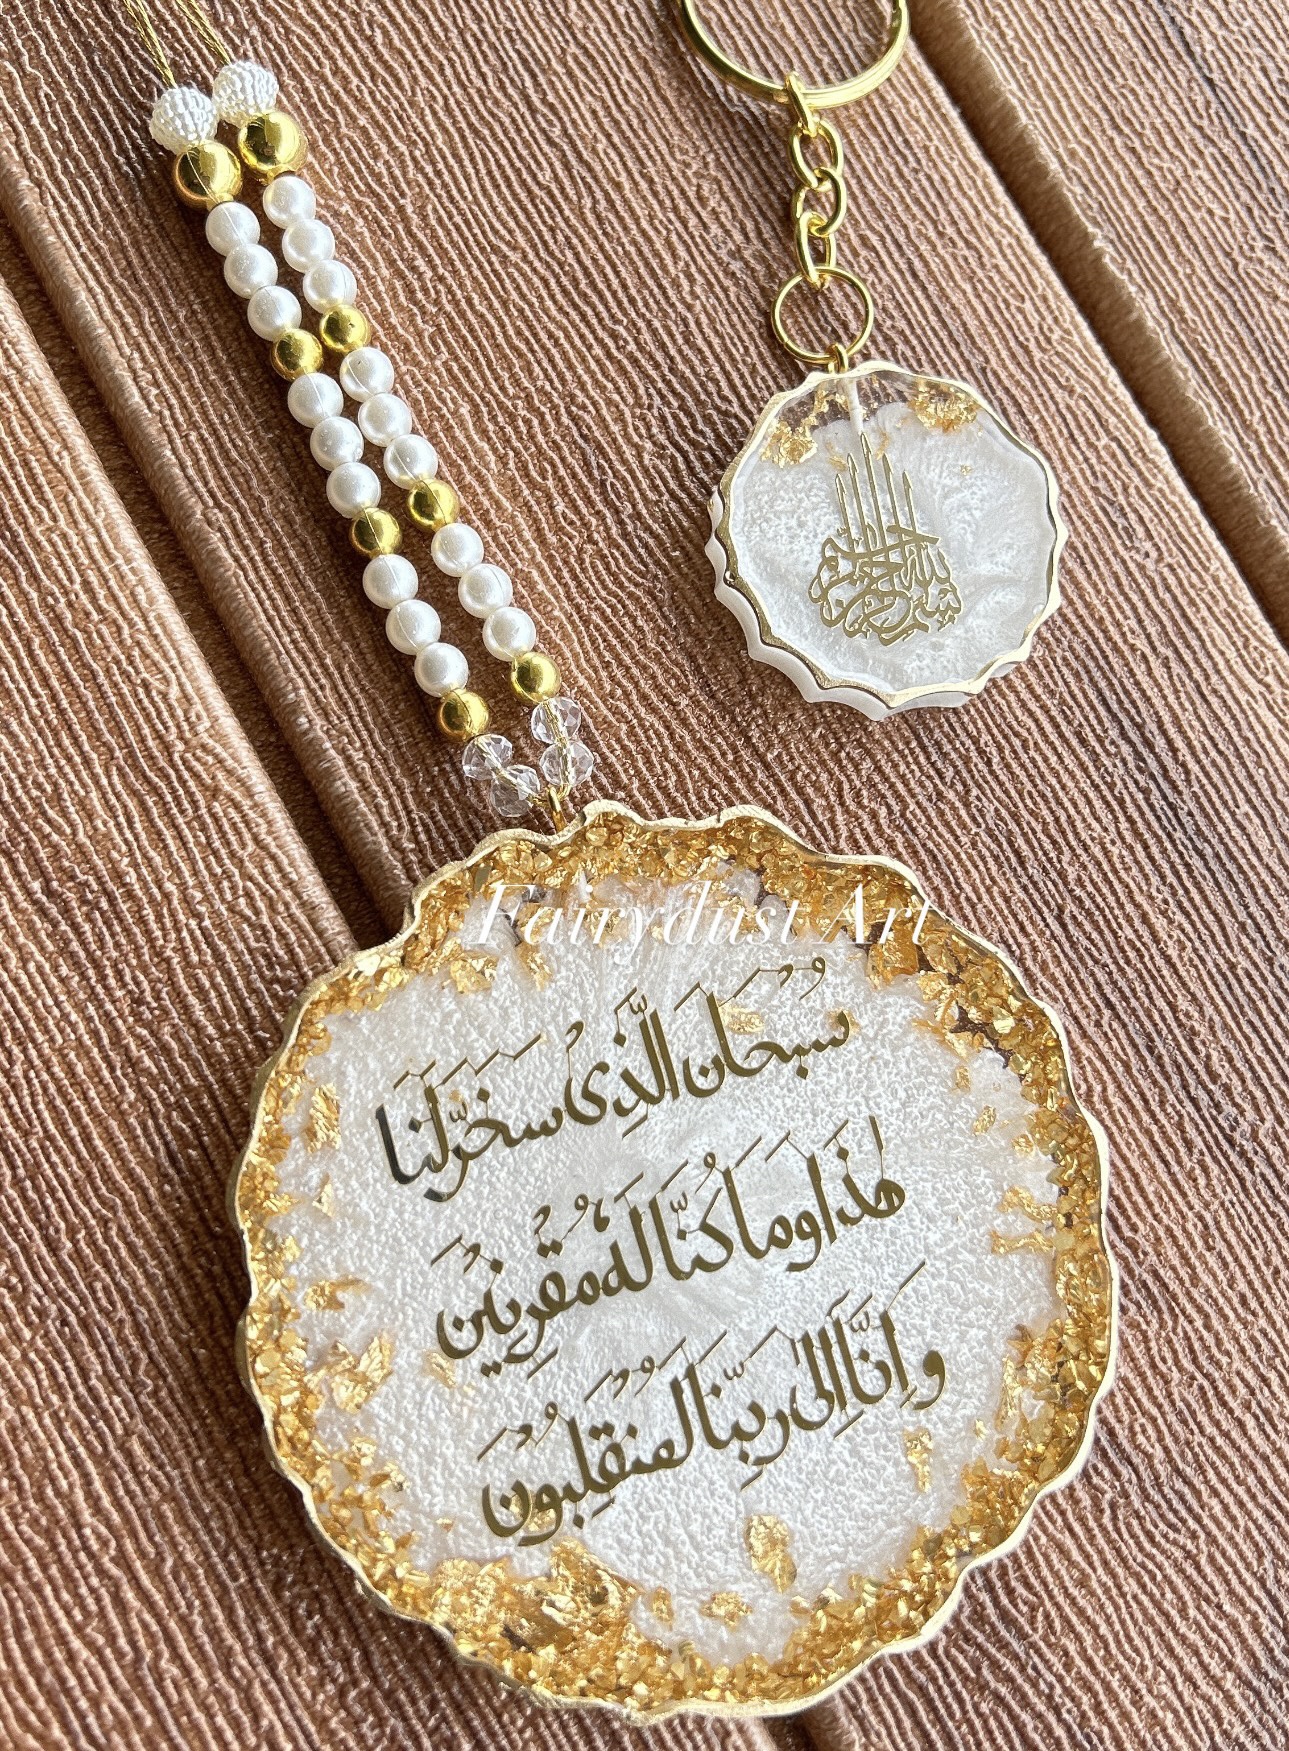 بسم الله الرحمن الرحيم
Fairydust Art
سُبْحَانَ الَّذِى سَخَّرَ لَنَا
هٰذَا وَمَا كُنَّا لَهُ مُقْرِنِيْنَ
وَاِنَّا اِلٰى رَبِّنَا لَمُنْقَلِبُوْنَ